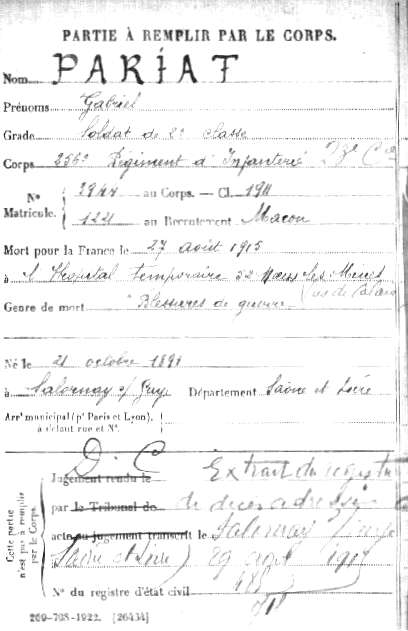 PARTIE À REMPLIR PAR LE CORPS.
Nom PARIAT
Prénoms Gabriel
Grade Soldat de 2e classe
Corps 256e Régiment d'Infanterie 23e Cie
N° Matricule. { 2944 au Corps. — Cl. 1911
1221 au Recrutement Macon
Mort pour la France le 27 août 1915
à l'Hopital temporaire 32 Noeux les Mines
(Pas de Calais
Genre de mort Blessures de guerre
Né le 21 octobre 1891
à Salornay s/ Guye Département Saône et Loire
Arrt municipal (pr Paris et Lyon), à défaut rue et N°.
D. C
Cette partie n'est pas à remplir par le Corps.
Jugement rendu le Extrait du registre
par le Tribunal de de décès adressé
acte ou jugement transcrit le Salornay
Saône et Loire)
N° du registre d'état civil
209-708-1922. [26434]